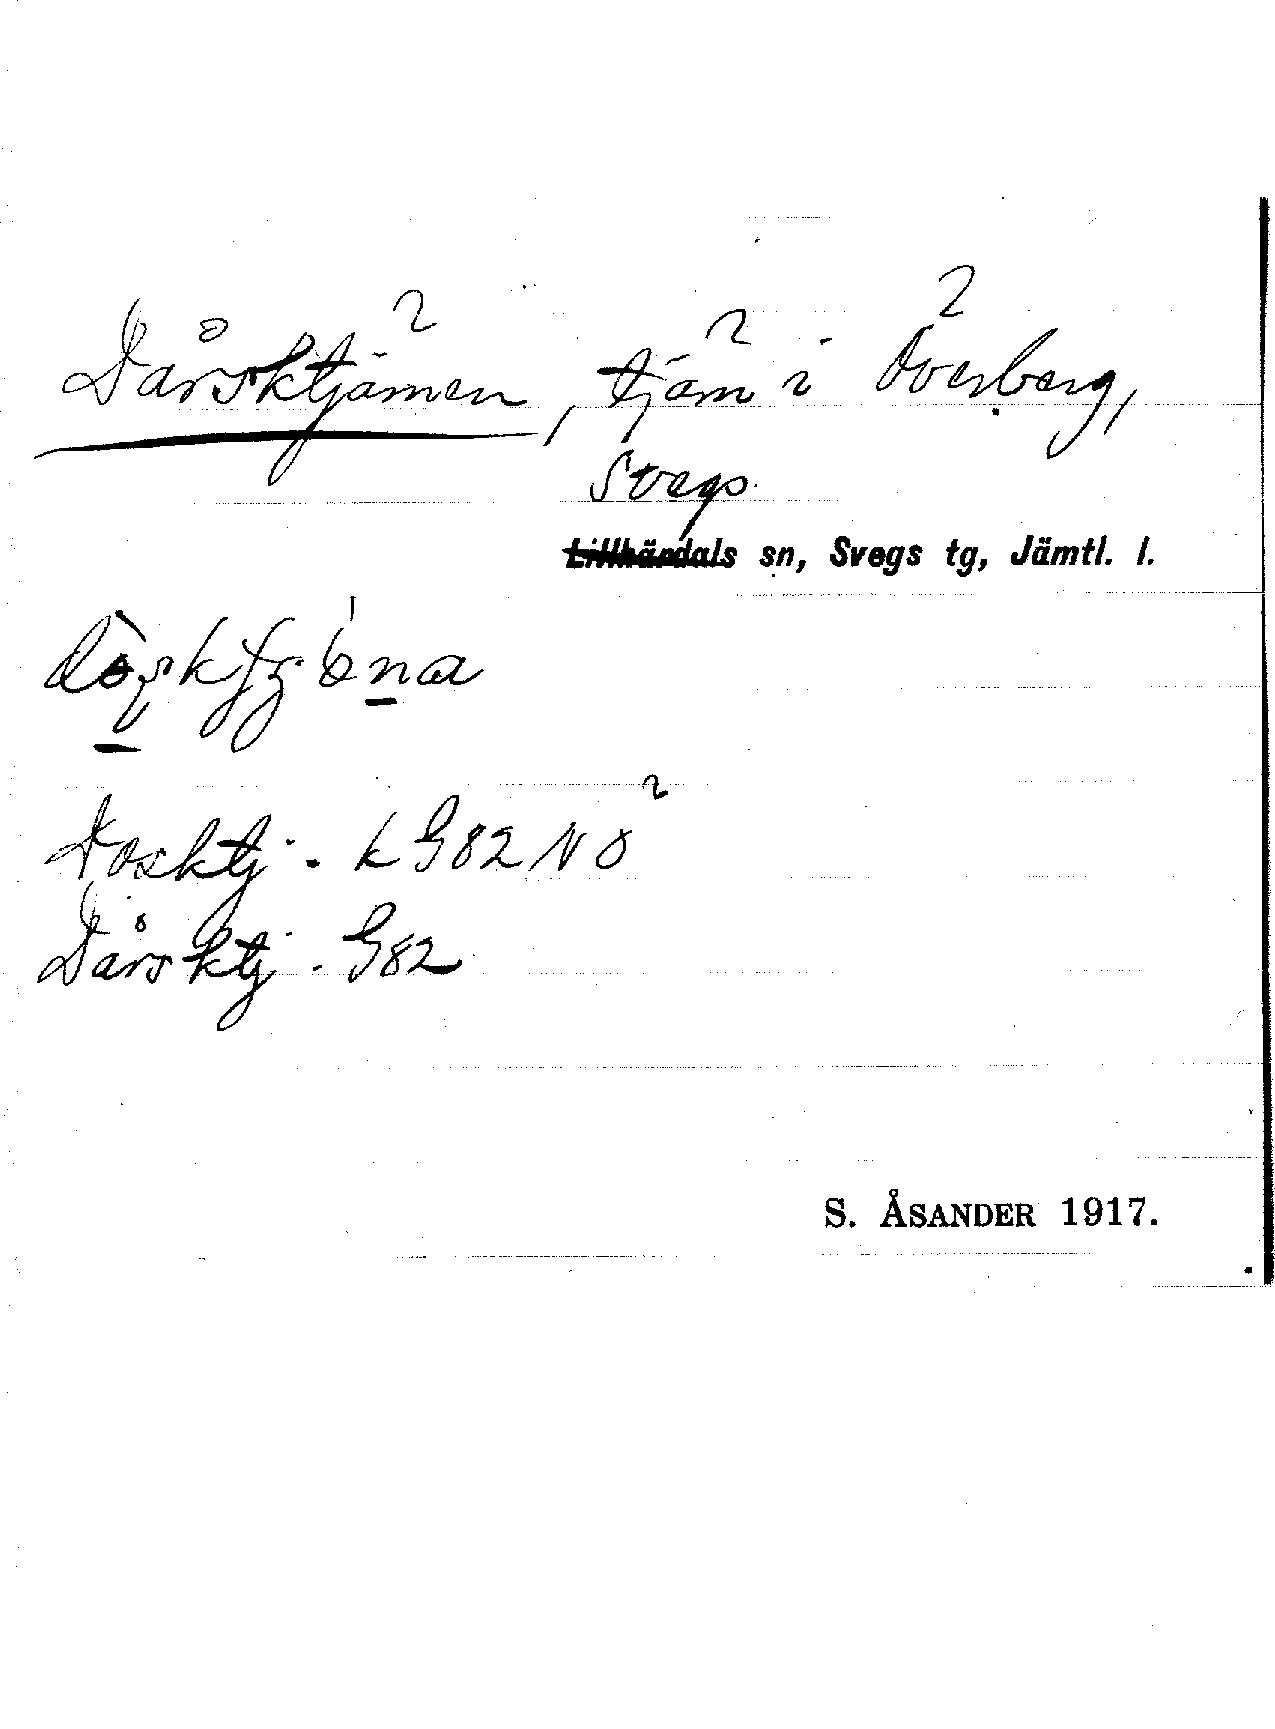 Dårsktjärnen, tjärn i Överberg,
Svegs
Lillhärdals sn, Svegs tg, Jämtl. l.
Dosktj. k G 82 NÖ
Dårsktj. G 82
S. ÅSANDER 1917.